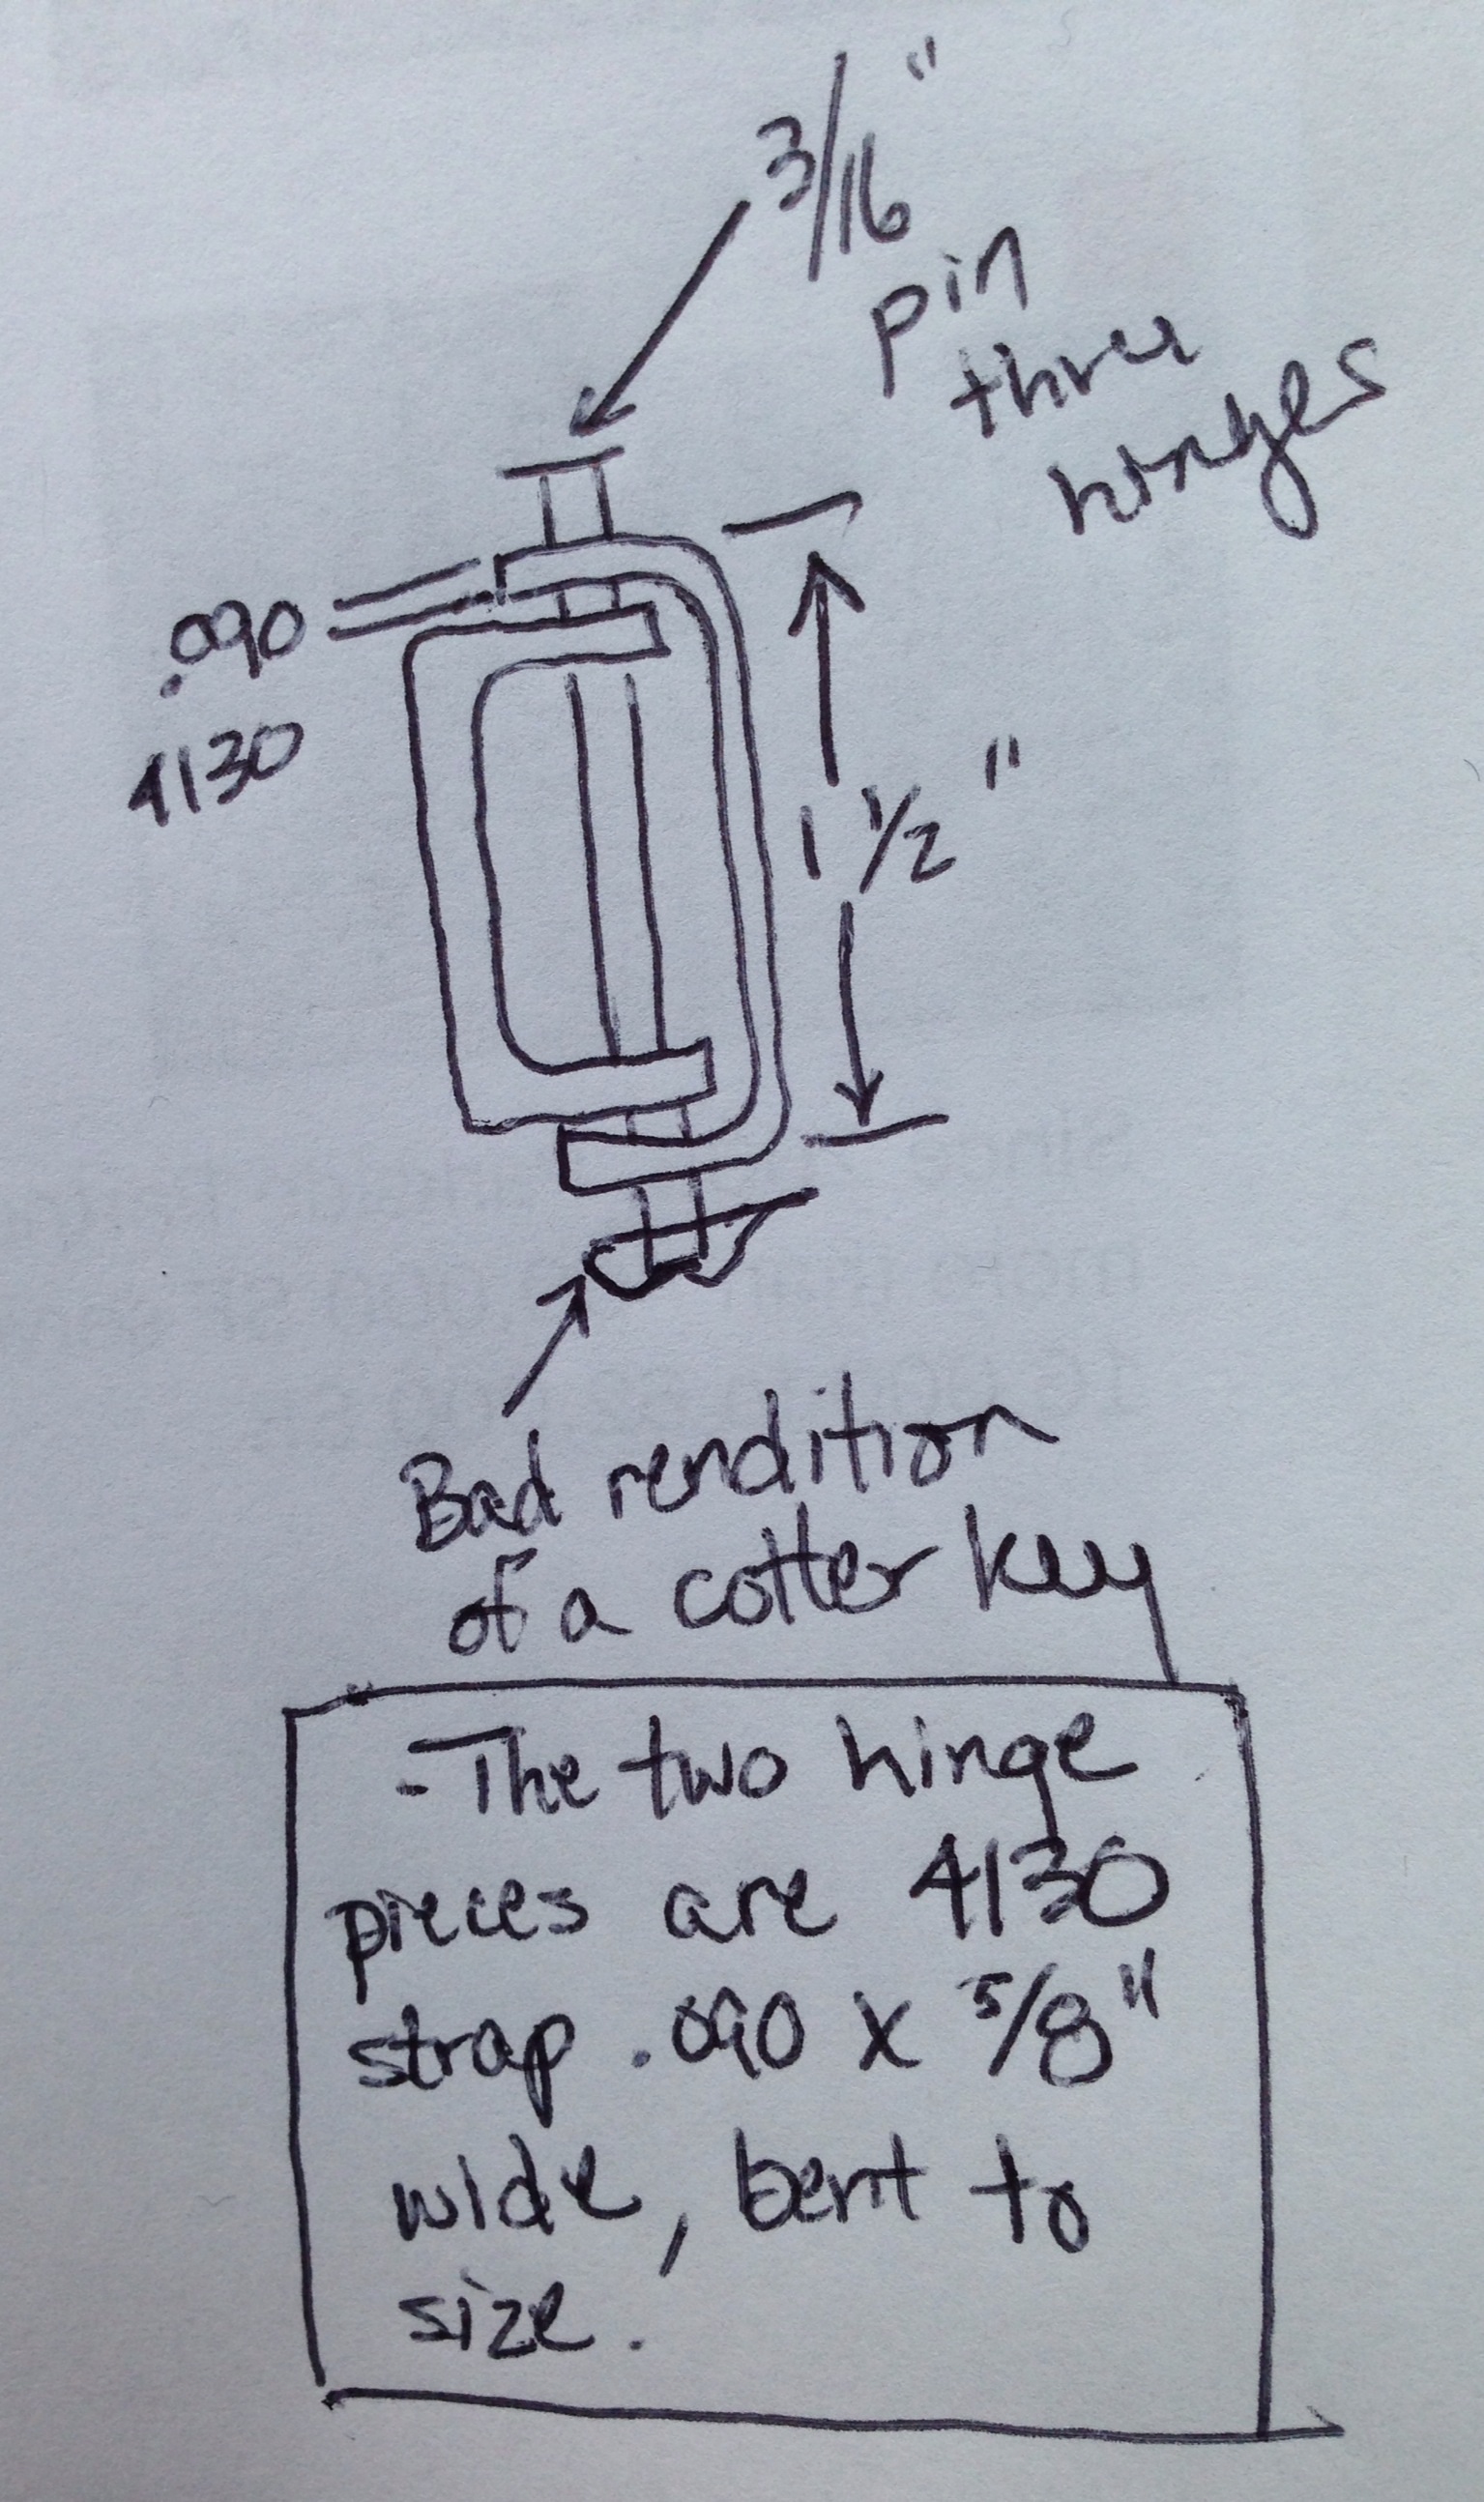 3/16"
pin
thru
hinges
.090
4130
1 1/2"
Bad rendition
of a cotter key
-The two hinge
pieces are 4130
strap .090 x 5/8"
wide, bent to
size.